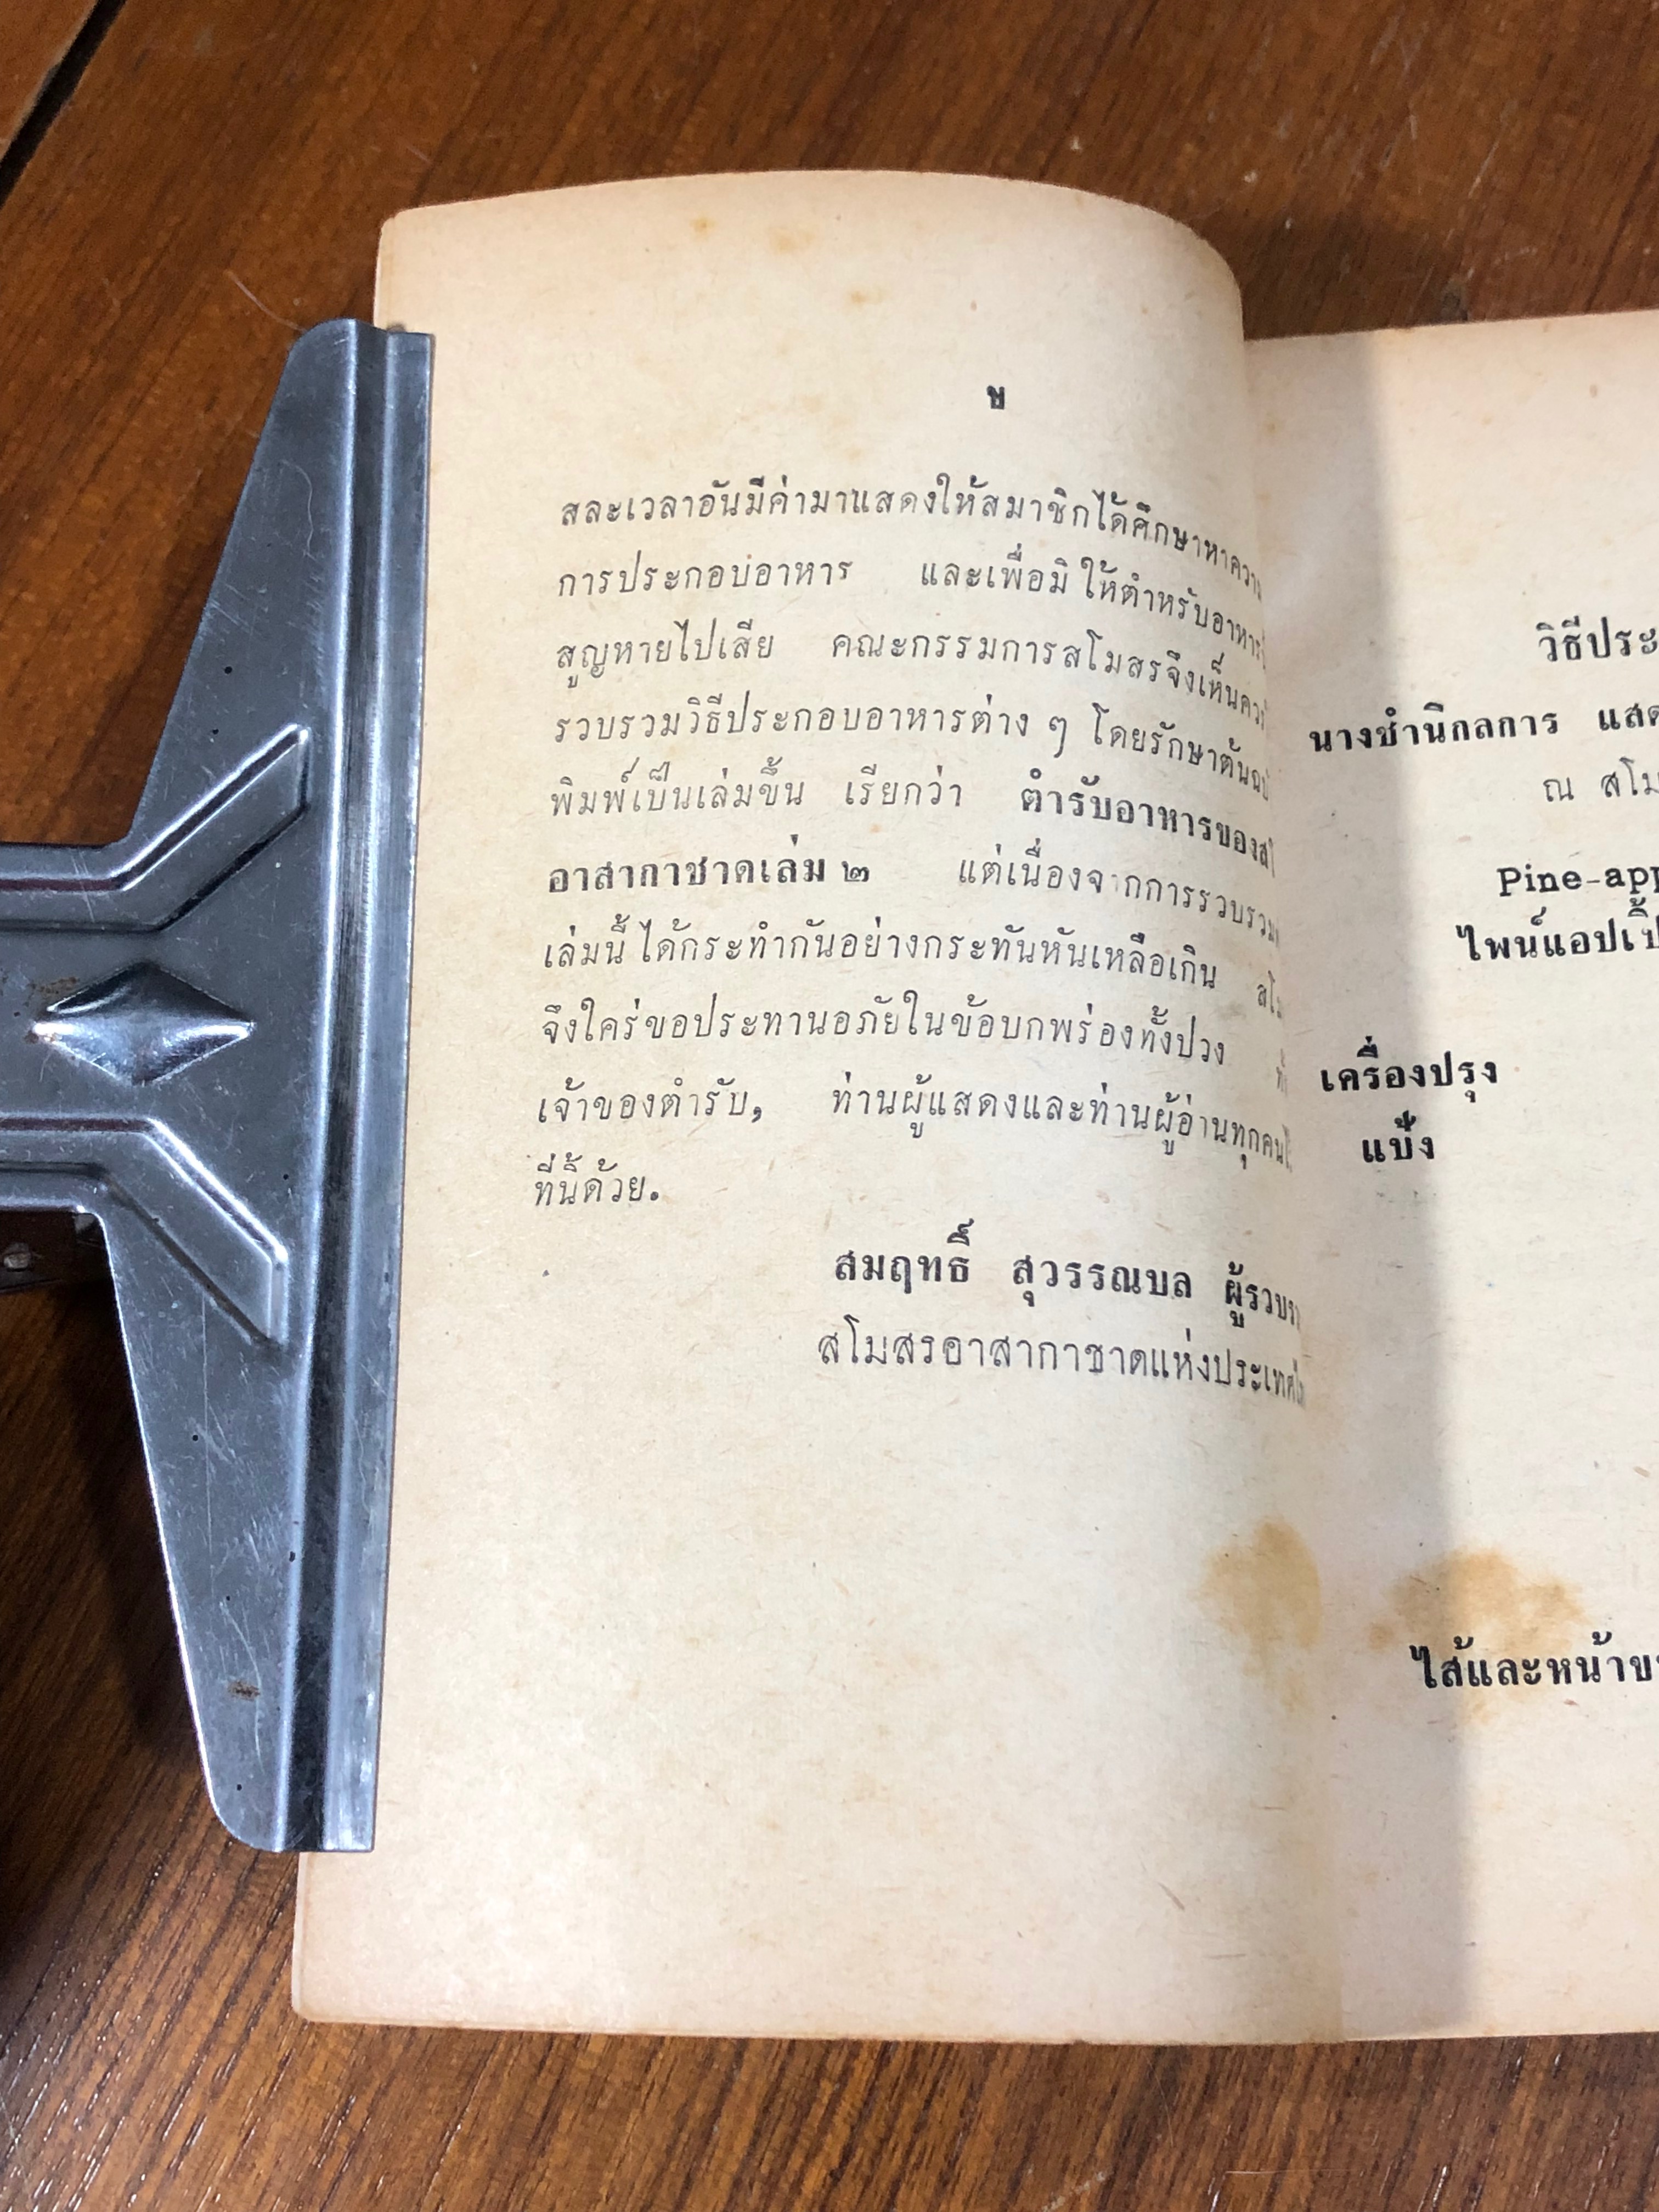 ข
สละเวลาอันมีค่ามาแสดงให้สมาชิกได้ศึกษาหาความ
การประกอบอาหาร และเพื่อมิให้ตำหรับอาหาร
สูญหายไปเสีย คณะกรรมการสโมสรจึงเห็นควร
รวบรวมวิธีประกอบอาหารต่าง ๆ โดยรักษาต้นฉบั
พิมพ์เป็นเล่มขึ้น เรียกว่า ตำรับอาหารของสโ
อาสากาชาดเล่ม ๒ แต่เนื่องจากการรวบรวม
เล่มนี้ได้กระทำกันอย่างกระทันหันเหลือเกิน สโม
จึงใคร่ขอประทานอภัยในข้อบกพร่องทั้งปวง
เจ้าของตำรับ, ท่านผู้แสดงและท่านผู้อ่านทุกคน
ที่นี้ด้วย.
สมฤทธิ์ สุวรรณบล ผู้รวบรว
สโมสรอาสากาชาดแห่งประเทศ
วิธีประ
นางชำนิกลการ แสด
ณ สโม
Pine-app
ไพน์แอปเปิ้
เครื่องปรุง
แป้ง
ไส้และหน้าข